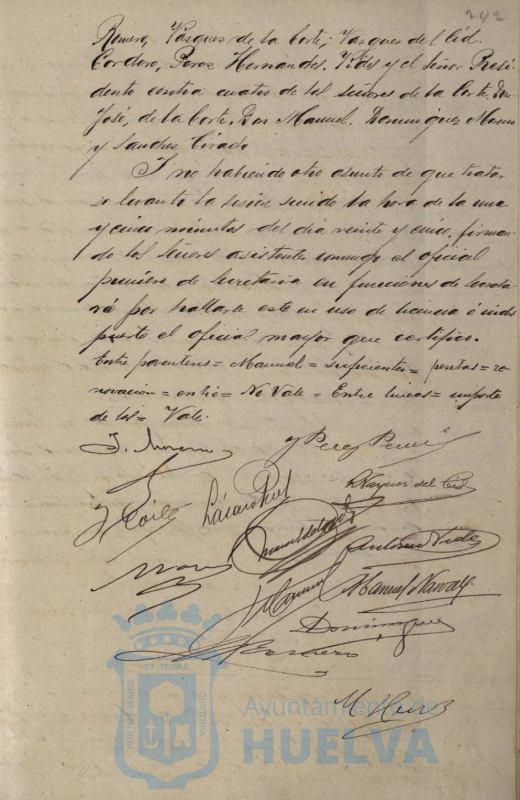 242
Romero, Vasquez de la Corte, Vazquez del Cid.
Cordero, Perez Hernandez. Vides y el Señor Presi-
dente contra cuatro de los señores de la Corte Don
José, de la Corte. Don Manuel. Dominguez
y Sanchez
Y no habiendo otro asunto de que tratar
se levantó la sesión siendo la hora de la una
y cinco minutos del dia veinte y cinco, firman-
do los Señores asistentes conmigo el oficial
primero de Secretaria en funciones de Secreta-
rio por hallarse este en uso de licencia é indis
puesto el oficial mayor que certifico.
Entre parentesis = Manuel = suficientes = pesetas = re
novacion = entio = No Vale = Entre lineas = importe
de los = Vale.
Vazquez del Cid
Antonio Vides
Manuel Narvaez
Dominguez
Cordero
PORTUS MARIS
ET TERRÆ
CUSTODIA
Ayuntamiento de
HUELVA